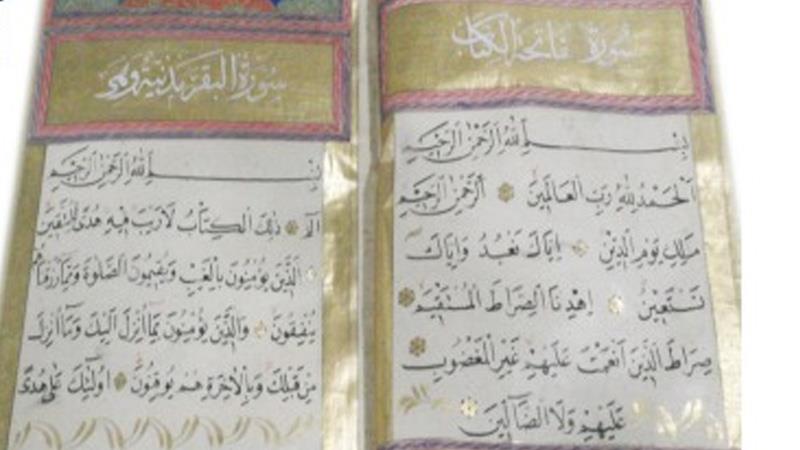 سورة فاتحة الكتاب
بسم الله الرحمن الرحيم
الحمد لله رب العالمين الرحمن الرحيم
ملك يوم الدين اياك نعبد واياك
نستعين اهدنا الصراط المستقيم
صراط الذين انعمت عليهم غير المغضوب
عليهم ولا الضالين
سورة البقرة مدنية وهي
بسم الله الرحمن الرحيم
الم ذلك الكتاب لا ريب فيه هدى للمتقين
الذين يؤمنون بالغيب ويقيمون الصلوة ومما رزقنا
ينفقون والذين يؤمنون بما انزل اليك وما انزل
من قبلك وبالاخرة هم يوقنون اولئك على هدى